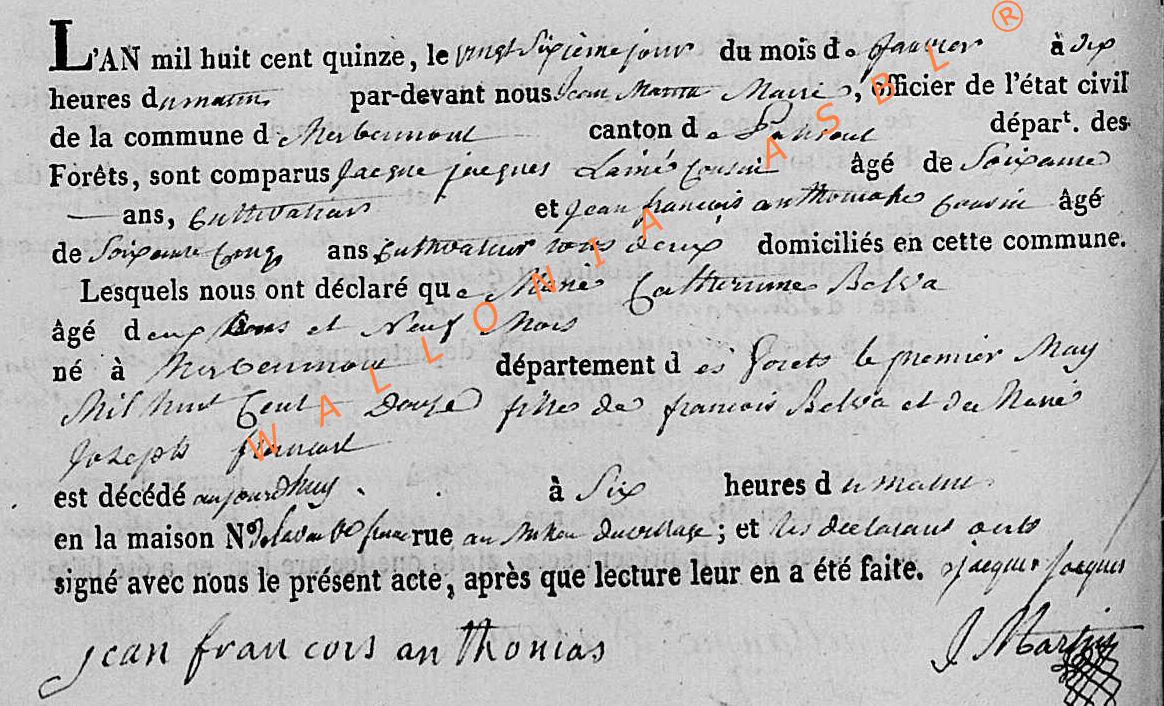 L'AN mil huit cent quinze, le vingt Sixième jour du mois de Janvier à dix
heures du matin par-devant nous Jean Martin Maire, officier de l'état civil
de la commune d'herbeumont canton de départ. des
Forêts, sont comparus Jacque jacques Lainé cousin âgé de Soixante
— ans, cultivateur et jean françois anthoinne cousin âgé
de Soixante cinq ans cultivateur tous deux domiciliés en cette commune.
Lesquels nous ont déclaré que Marie Catherinne Belva
âgé deux ans et Neuf Mois
né à Herbeumont département des forets le premier May
Mil huit Cent Douze fille de francois Belva et de Marie
Joseph
est décédé aujourdhuy à Six heures du matin
en la maison N° rue au milieu du village; et les déclarant onts
signé avec nous le présent acte, après que lecture leur en a été faite. jacque jacques
jean francois anthonias J Martin
WALLONIA ASBL ®